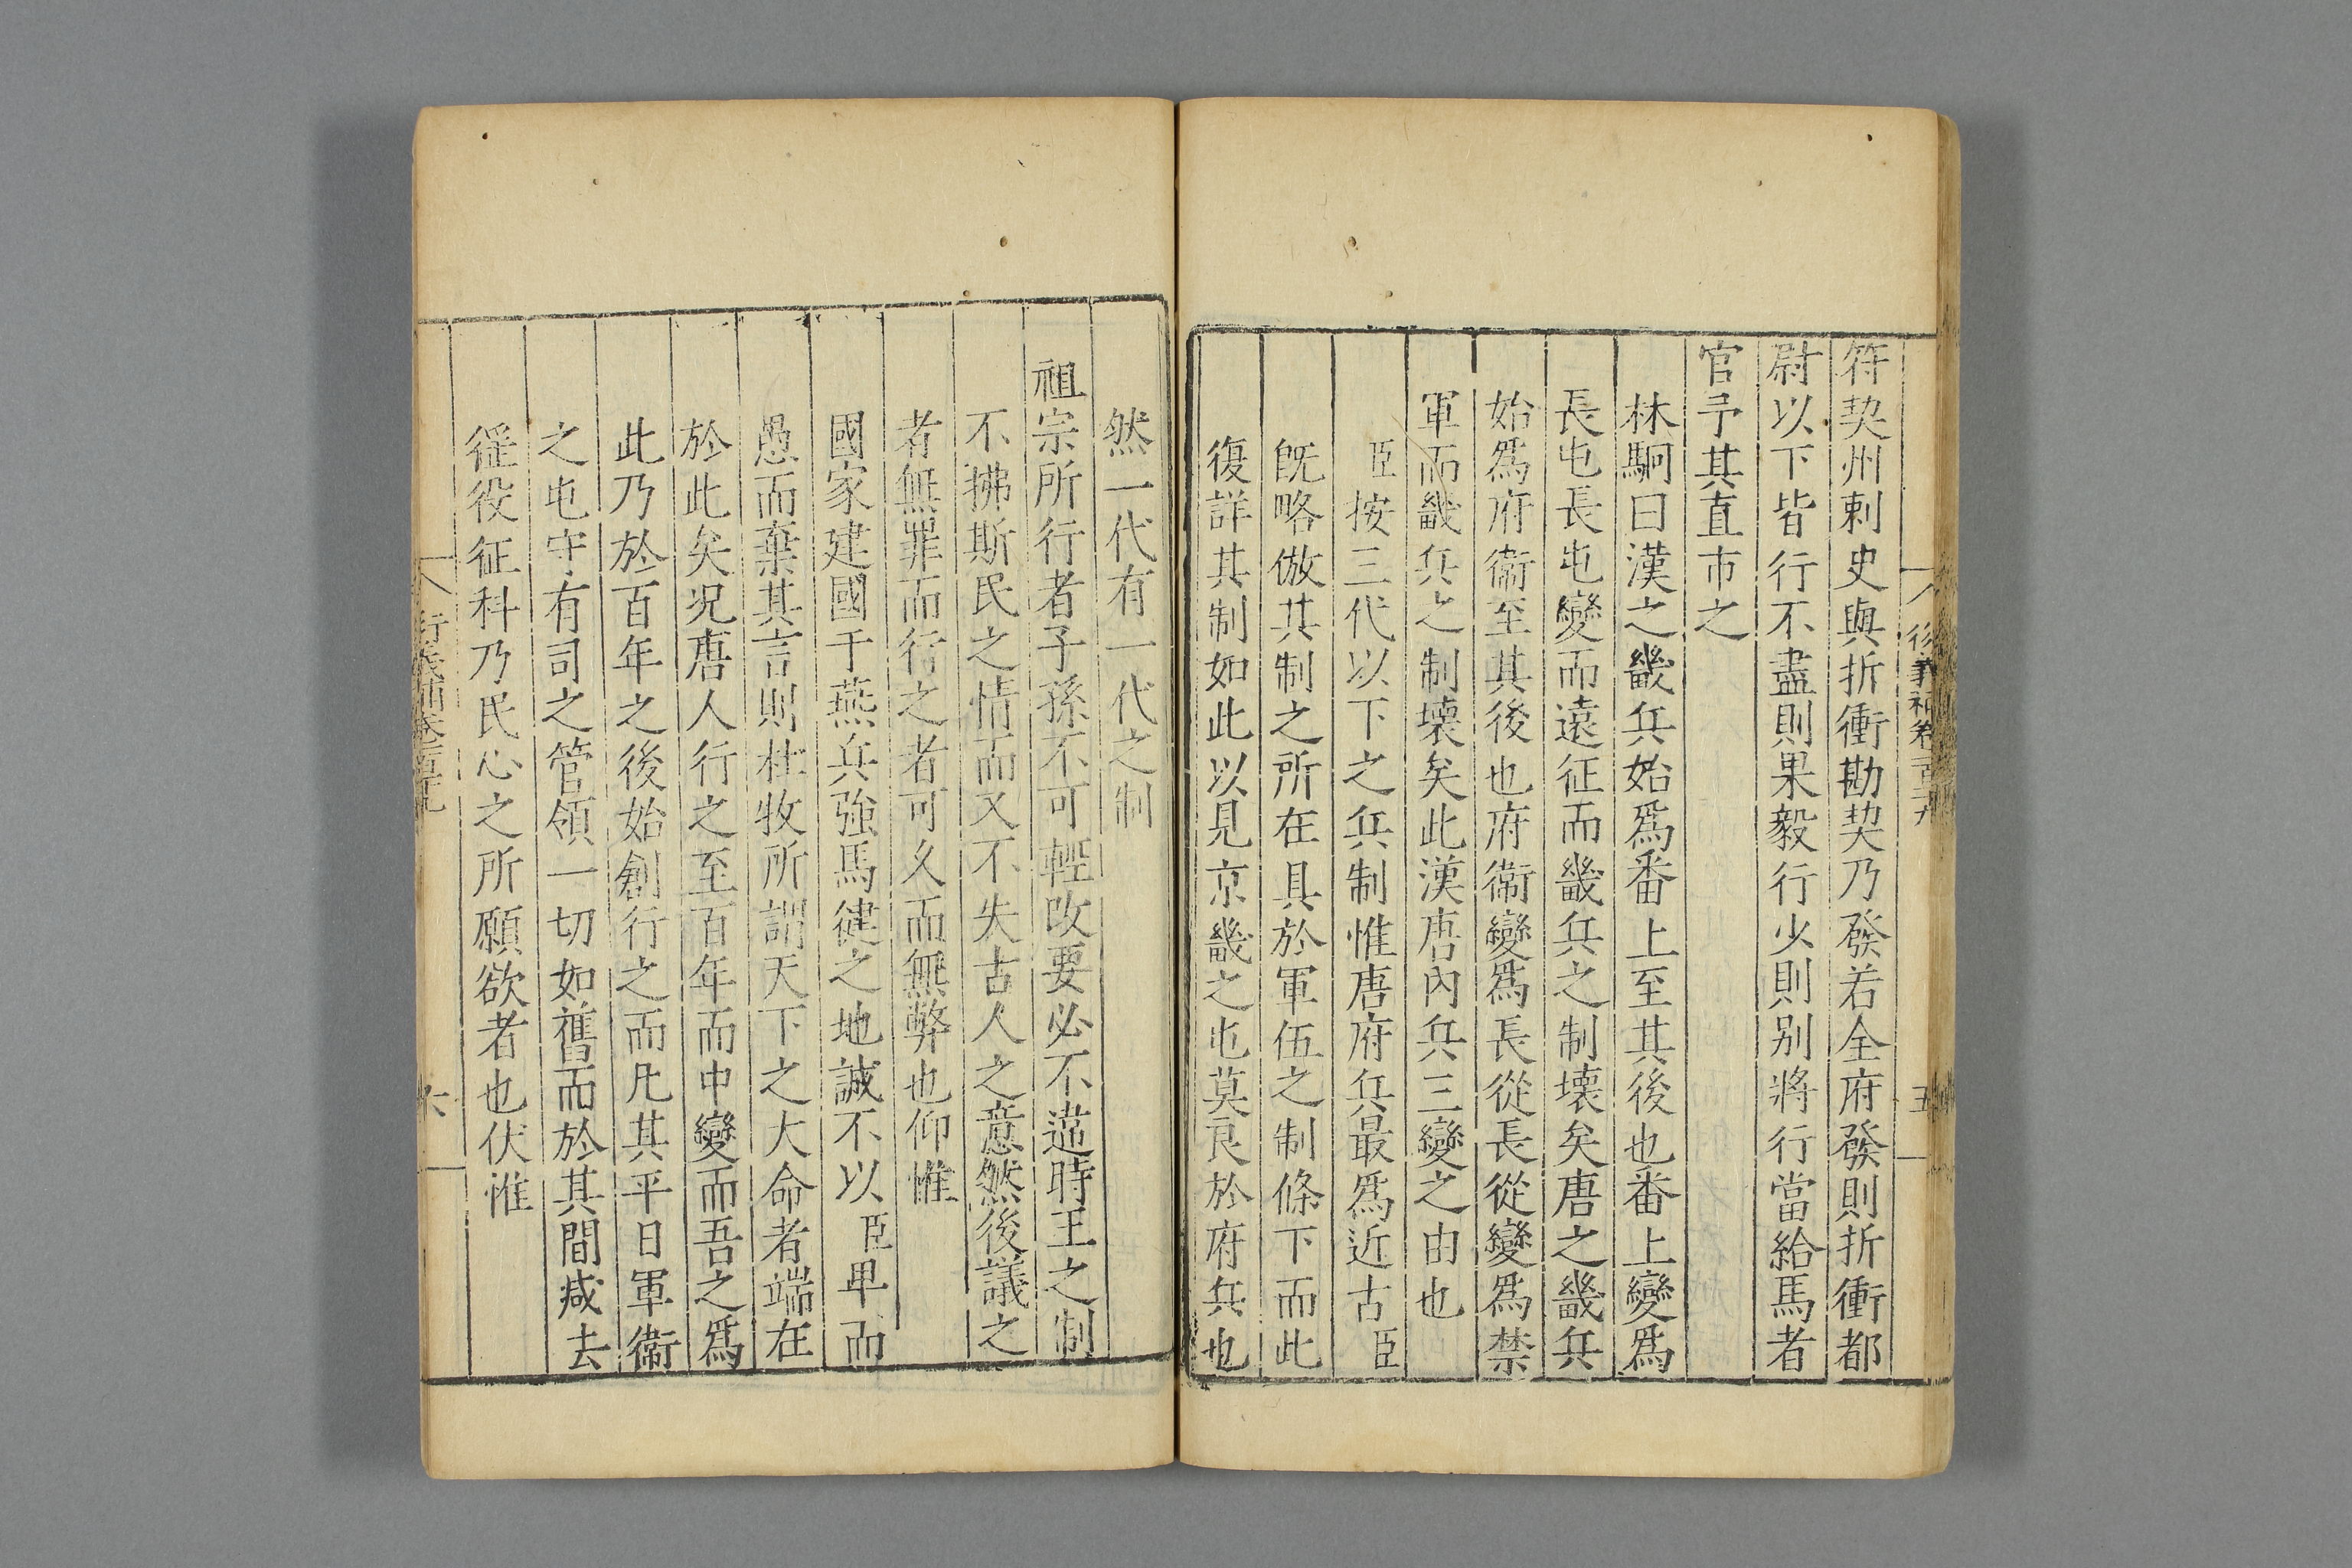 符契州剌史與折衝勘契乃發若全府發則折衝都
尉以下皆行不盡則果毅行少則别將行當給馬者
官予其直市之
林駉曰漢之畿兵始爲番上至其後也番上變爲
長屯長屯變而遠征而畿兵之制壊矣唐之畿兵
始爲府衞至其後也府衞變爲長從長從變爲禁
軍而畿兵之制壊矣此漢唐内兵三變之由也
臣按三代以下之兵制惟唐府兵最爲近古臣
既略倣其制之所在具於軍伍之制條下而此
復詳其制如此以見京畿之屯莫良於府兵也
然一代有一代之制
祖宗所行者子孫不可輕改要必不違時王之制
不拂斯民之情而又不失古人之意然後議之
者無罪而行之者可久而無弊也仰惟
國家建國于燕兵強馬健之地誠不以臣卑而
愚而棄其言則杜牧所謂天下之大命者端在
於此矣况唐人行之至百年而中變而吾之爲
此乃於百年之後始創行之而凡其平日軍衞
之屯守有司之管領一切如舊而於其間减去
徭役征科乃民心之所願欲者也伏惟